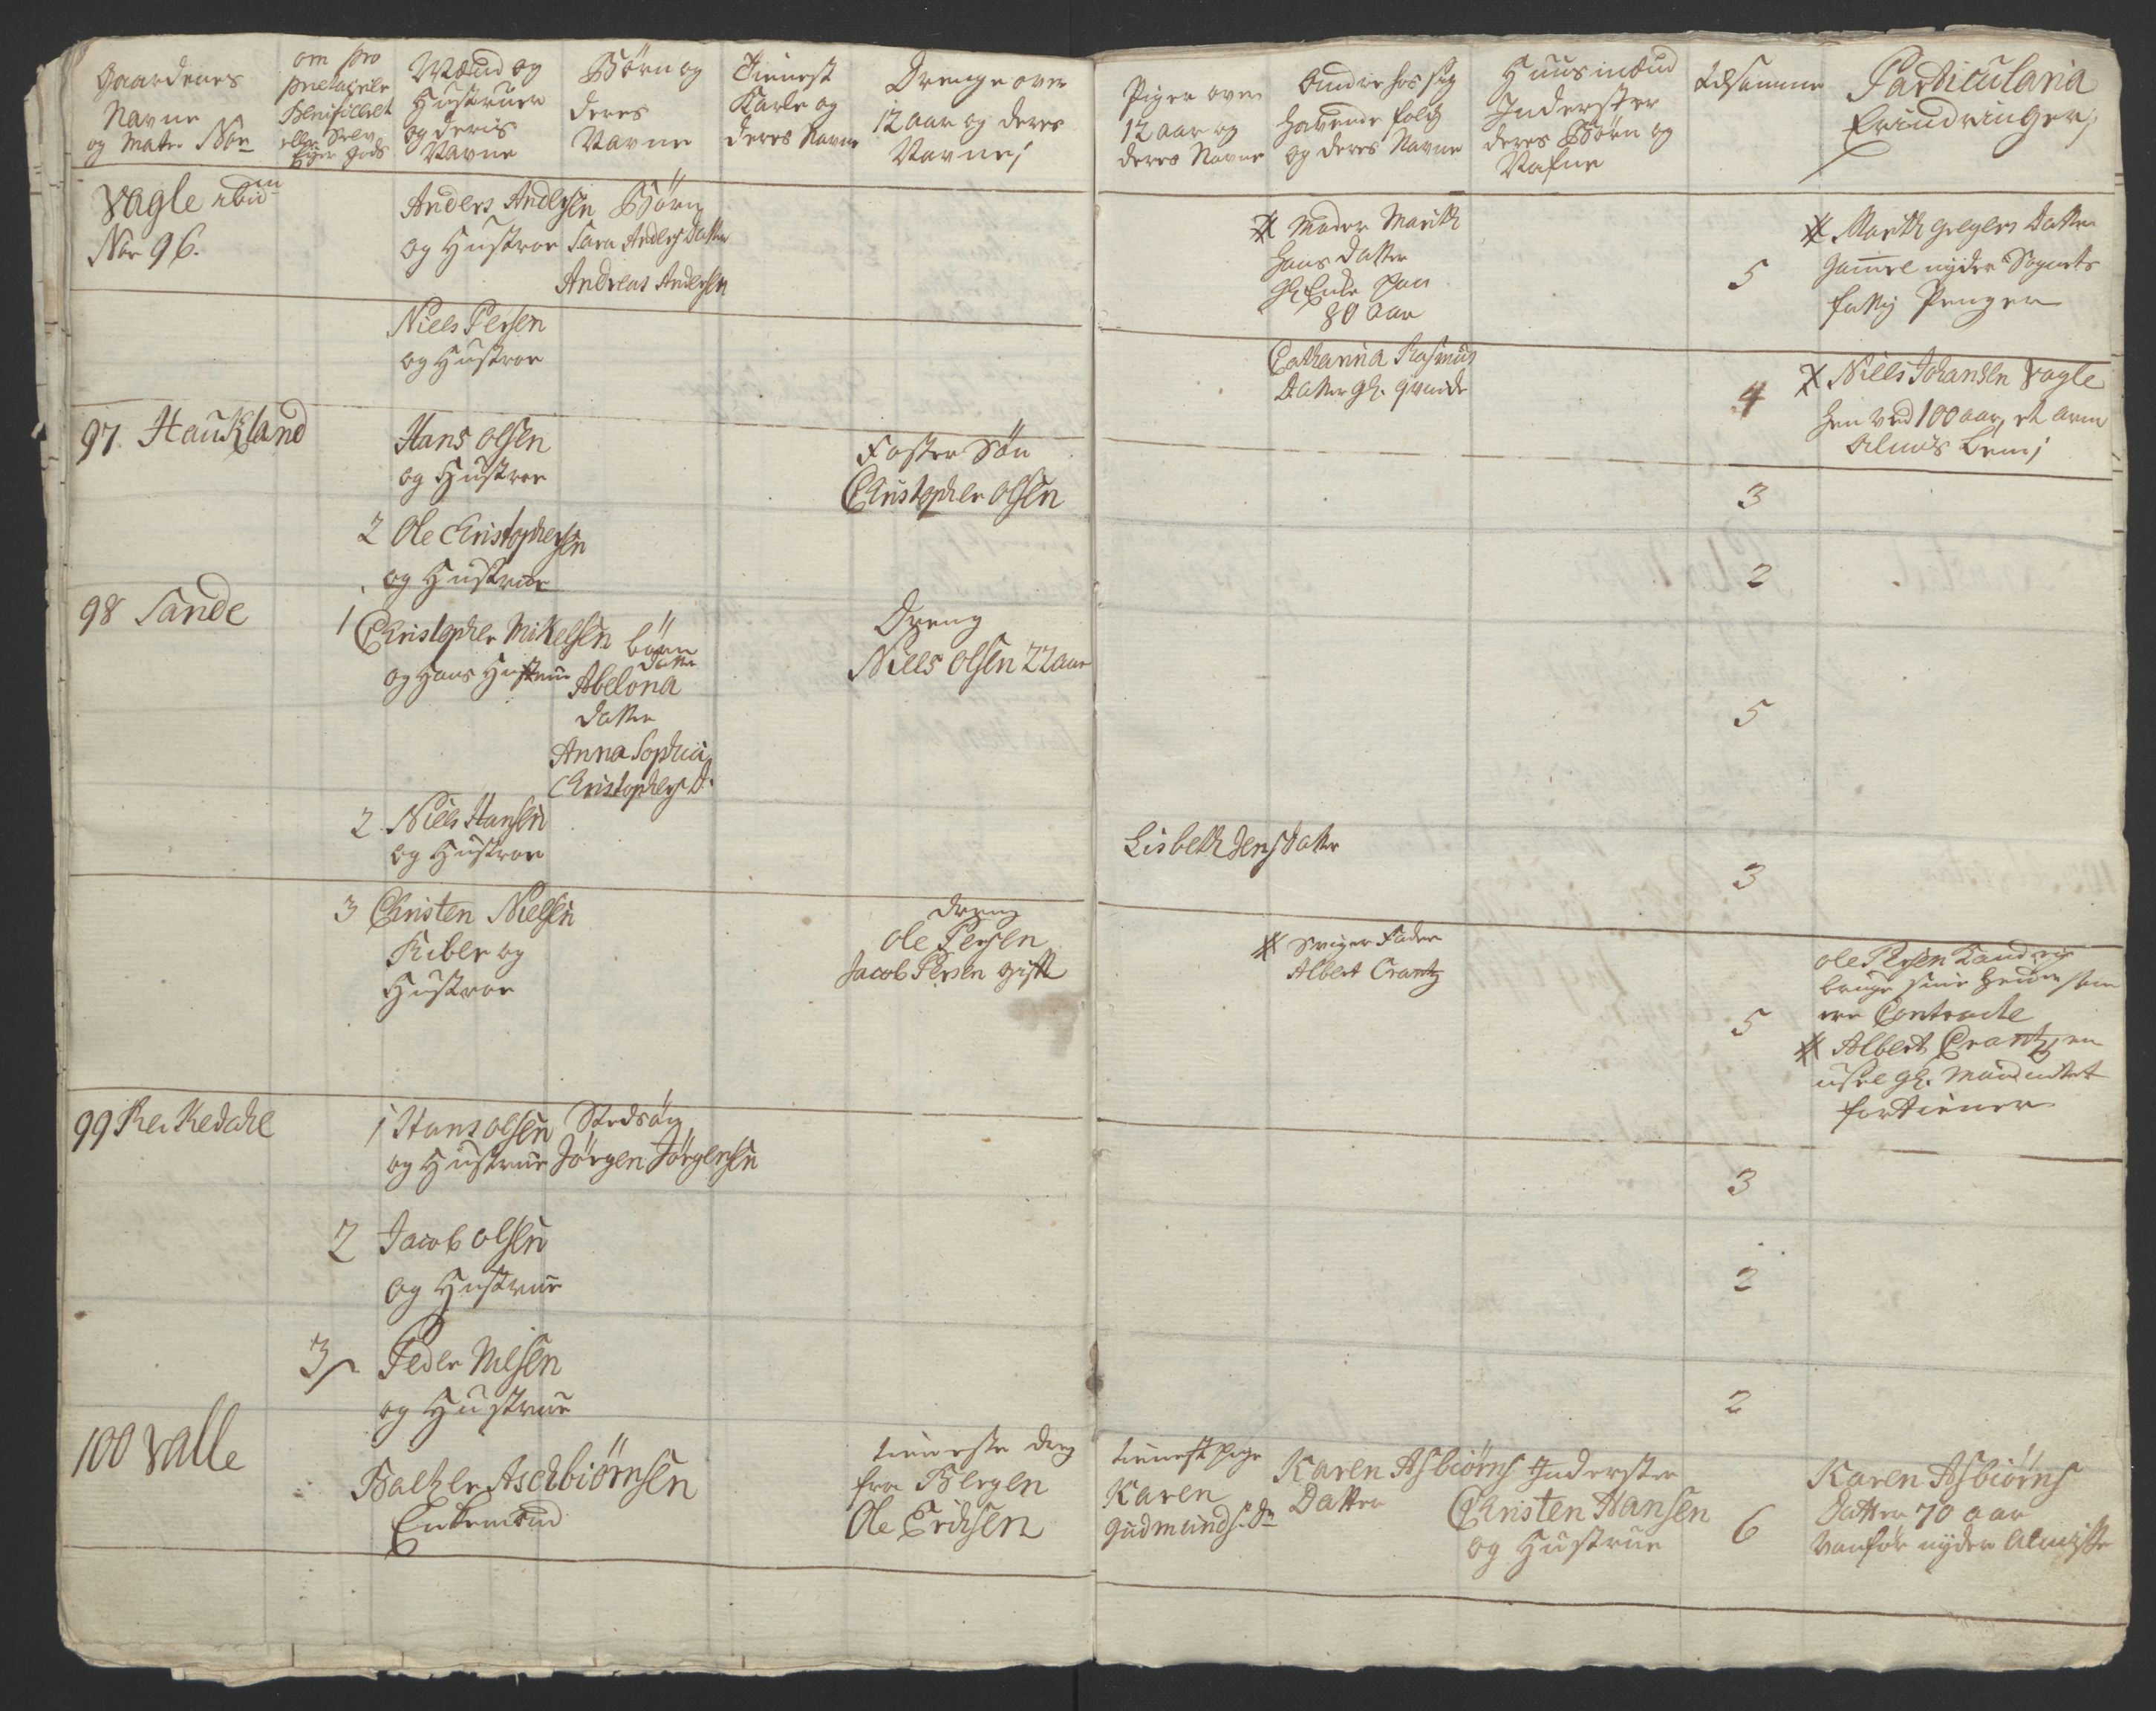 Gaardenes
Navne
og Matr. Nor
om pro
Benificeret
eller Selv
Eyer gods
Mænd og
Hustruer
og deris
Navne
Børn og
deres
Navne
Tienest
Karle og
deres Navne
Drenge over
12 aar og deres
Navne;
Piger over
12 aar og
deres Navne
Andre hos sig
havende folch
og deres Navne
Huusmænd
Inderster
deres Børn og
Nafne
Tilsamme
Particularia
Erindringer;
Vagle ibidm
Nor 96.
Anders Andersen
og Hustroe
Børn
Sara Anders Datter
Andreas Andersen
# Moder Marith
Hans Datter
gl. Enke paa
80 aar
5
# Marith Gregers Datter
gamel nyder Sognets
fattig Penger
Niels Persen
og Hustroe
Catharina Rasmus
Datter gl. qvinde
4
# Niels Johansen Vagle
hen ved 100 aar, et arm
Almis Lem;
97. Haukland
Hans Olsen
og Hustroe
Foster Søn
Christopher Olsen
3
2 Ole Christophersen
og Hustrue
2
98 Sande
1 Christopher Mikelsen
og Hans Hustrue
børn
Datter
Abelona
Datter
Anna Sophia
Christophers D.
Dreng
Niels Olsen 22 aar
5
2 Niels Hansen
og Hustroe
Lisbeth Jens Datter
3
3 Christen Nielsen
Kiber og
Hustroe
dreng
Ole Persen
Jacob Persen gift
# Sviger Fader
Albert Crantz
5
Ole Persen Kand ej
bruge sine Hender som
ere Contracte
# Albert Crantz, en
usel gl. Mand intet
fortiener
99 Reikedahl
1 Hans Olsen
og Hustrue
Stedsøn
Jørgen Jørgensen
3
2 Jacob Olsen
og Hustrue
2
3 Peder Nilsen
og Hustrue
2
100 Valle
Balzer Aschbiørnsen
Enkemand
tieneste dreng
fra Bergen
Ole Erichsen
tienest pige
Karen
Gudmunds Dr
Karen Asbiørns
Datter
Inderster
Christen Hansen
og Hustrue
6
Karen Asbiørns
Datter 70 aar
vanfør nyder Almisse